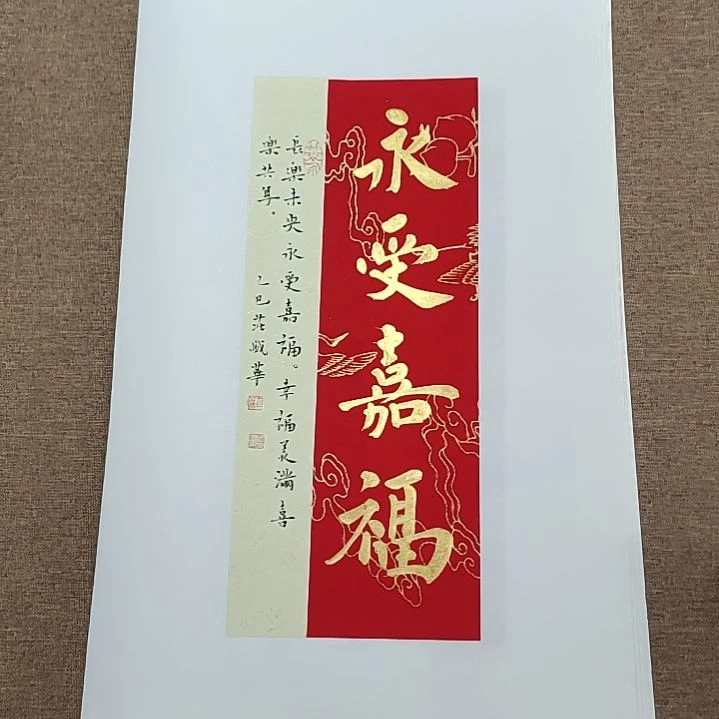 永受嘉福
長樂未央永受嘉福。幸福美滿喜
樂共享.
乙巳 華